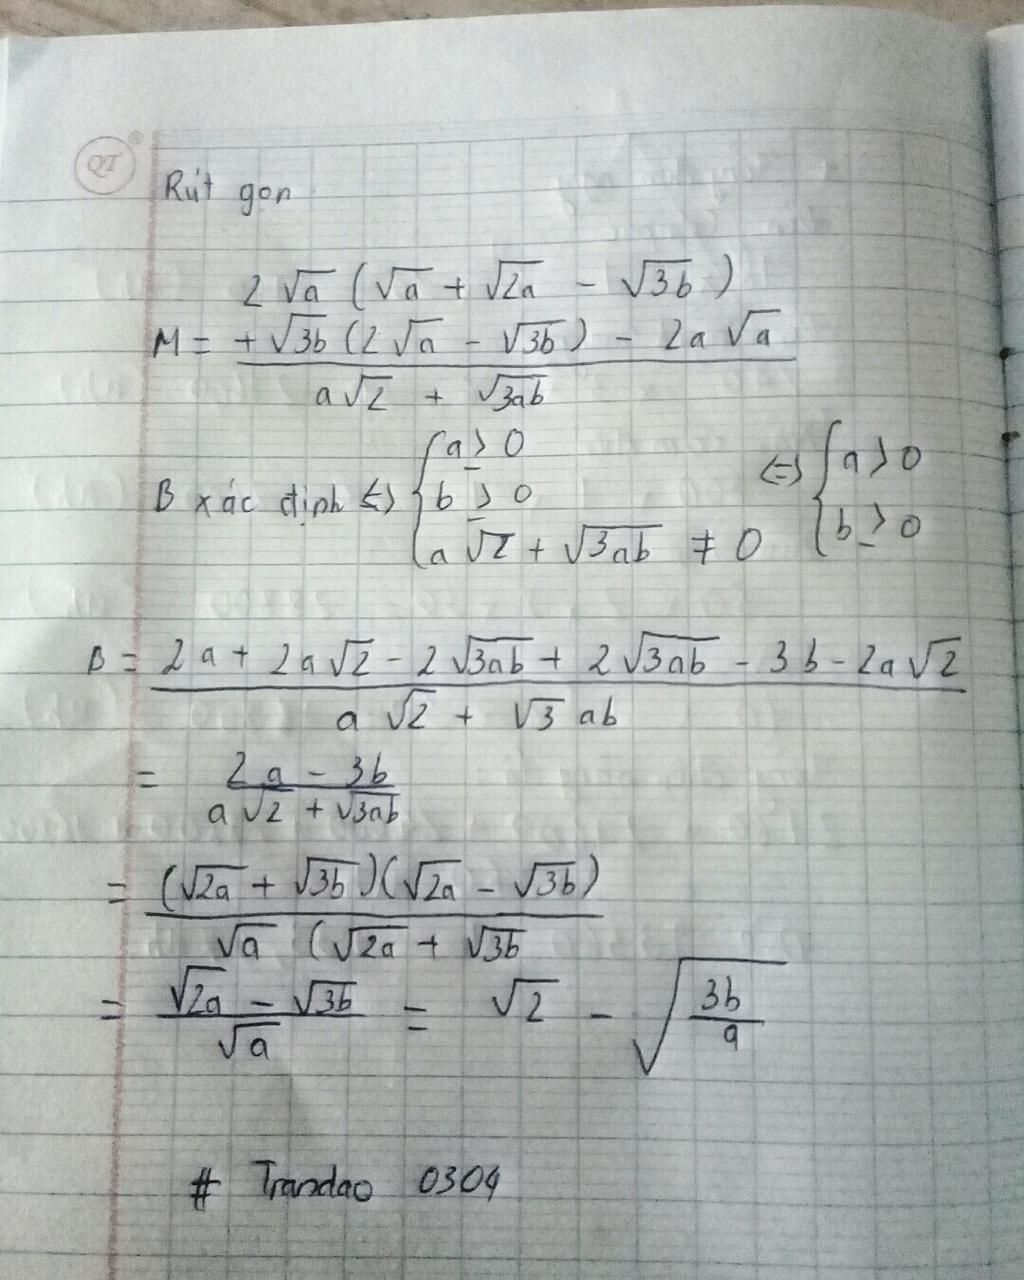 QT
Rút gọn
2√a (√a + √2a - √3b)
M = + √3b (2√a - √3b) - 2a√a
a√2 + √3ab
B xác định <=> { a ≥ 0
b ≥ 0
a√2 + √3ab ≠ 0
<=> { a > 0
b ≥ 0
B = 2a + 2a√2 - 2√3ab + 2√3ab - 3b - 2a√2
a√2 + √3 ab
= 2a - 3b
a√2 + √3ab
= (√2a + √3b)(√2a - √3b)
√a (√2a + √3b
= √2a - √3b = √2 - √3b
√a a
# Trandao 0304